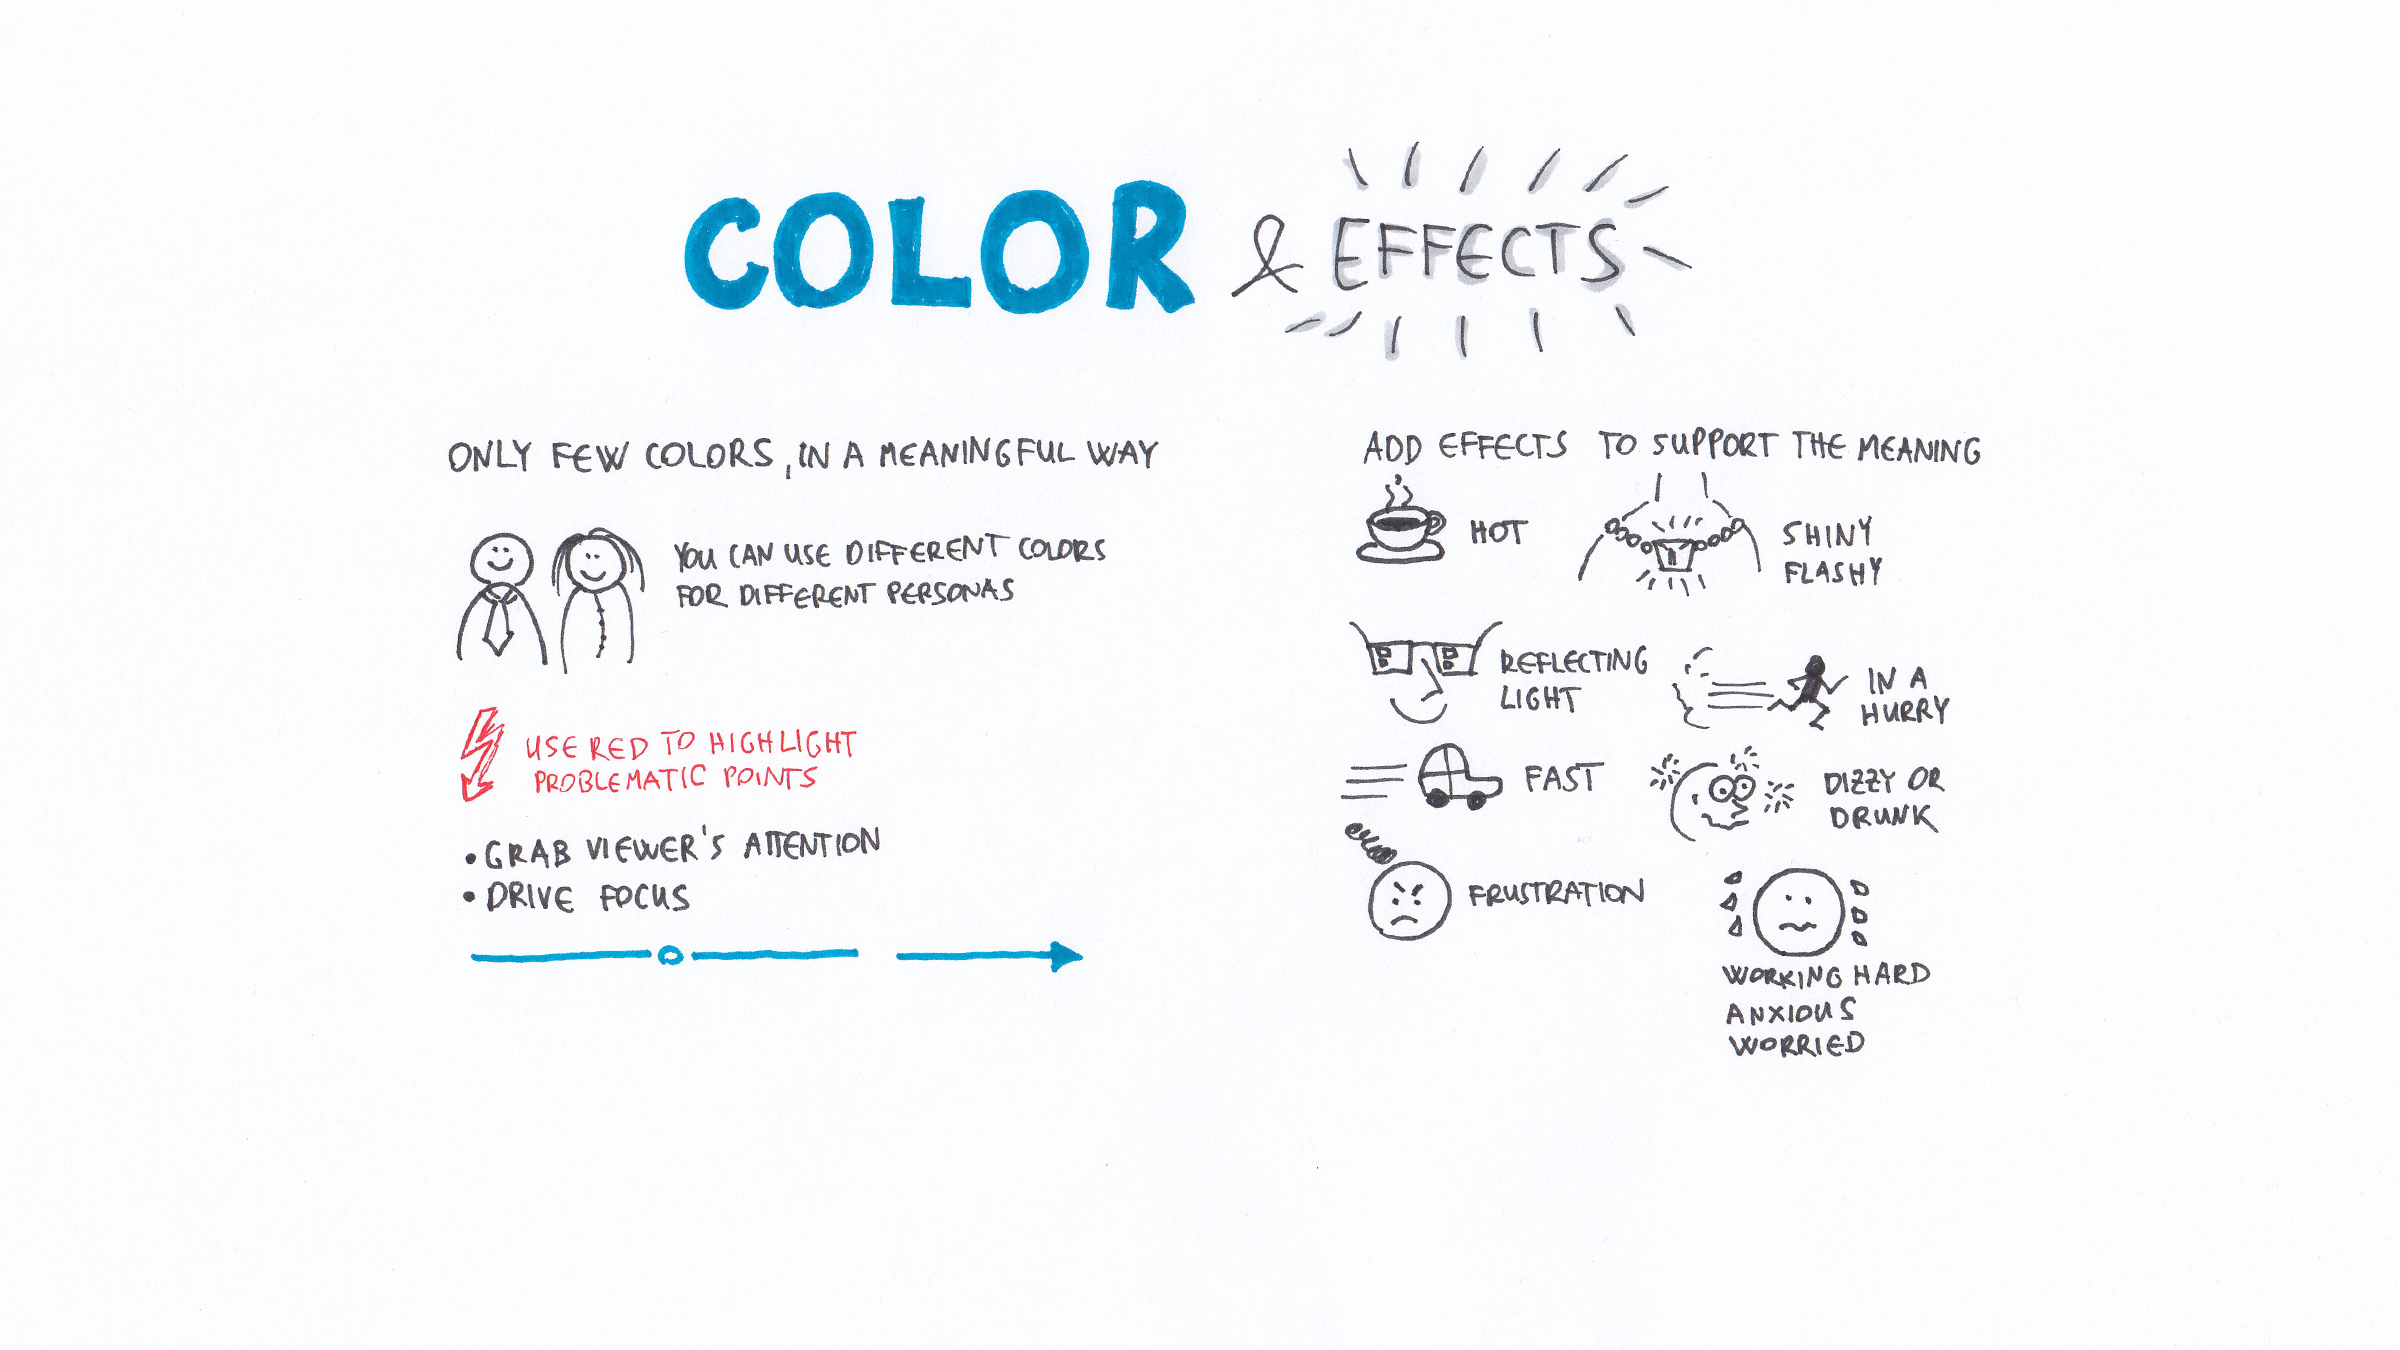 COLOR & EFFECTS
ONLY FEW COLORS, IN A MEANINGFUL WAY
YOU CAN USE DIFFERENT COLORS
FOR DIFFERENT PERSONAS
USE RED TO HIGHLIGHT
PROBLEMATIC POINTS
• GRAB VIEWER'S ATTENTION
• DRIVE FOCUS
ADD EFFECTS TO SUPPORT THE MEANING
HOT
SHINY
FLASHY
REFLECTING
LIGHT
IN A
HURRY
FAST
DIZZY OR
DRUNK
FRUSTRATION
WORKING HARD
ANXIOUS
WORRIED